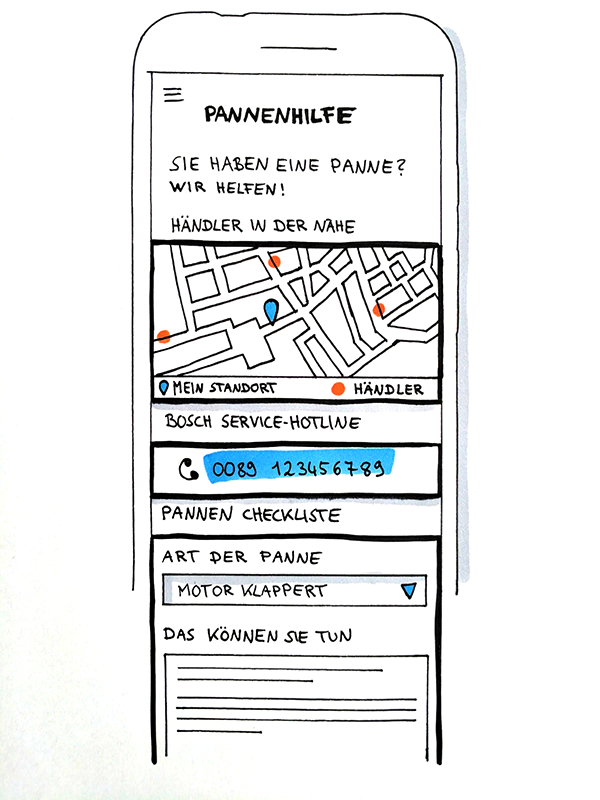 PANNENHILFE
SIE HABEN EINE PANNE?
WIR HELFEN!
HÄNDLER IN DER NÄHE
MEIN STANDORT HÄNDLER
BOSCH SERVICE-HOTLINE
0089 123456789
PANNEN CHECKLISTE
ART DER PANNE
MOTOR KLAPPERT
DAS KÖNNEN SIE TUN